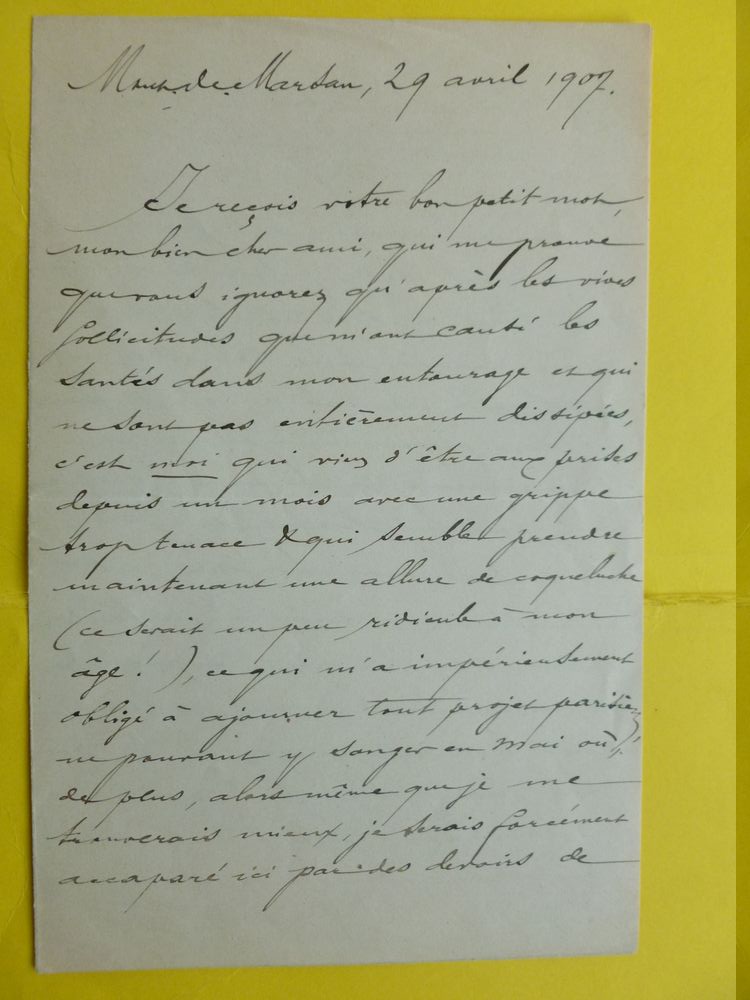 Mont-de-Marsan, 29 avril 1907.
Je reçois votre bon petit mot,
mon bien cher ami, qui me prouve
que vous ignorez qu'après les vives
sollicitudes que m'ont causé les
santés dans mon entourage et qui
ne sont pas entièrement dissipées,
c'est moi qui viens d'être aux prises
depuis un mois avec une grippe
trop tenace & qui semble prendre
maintenant une allure de coqueluche
(ce serait un peu ridicule à mon
âge ! ), ce qui m'a impérieusement
obligé à ajourner tout projet parisien,
ne pouvant y songer en mai où,
de plus, alors même que je me
trouverais mieux, je serais forcément
accaparé ici par des devoirs de